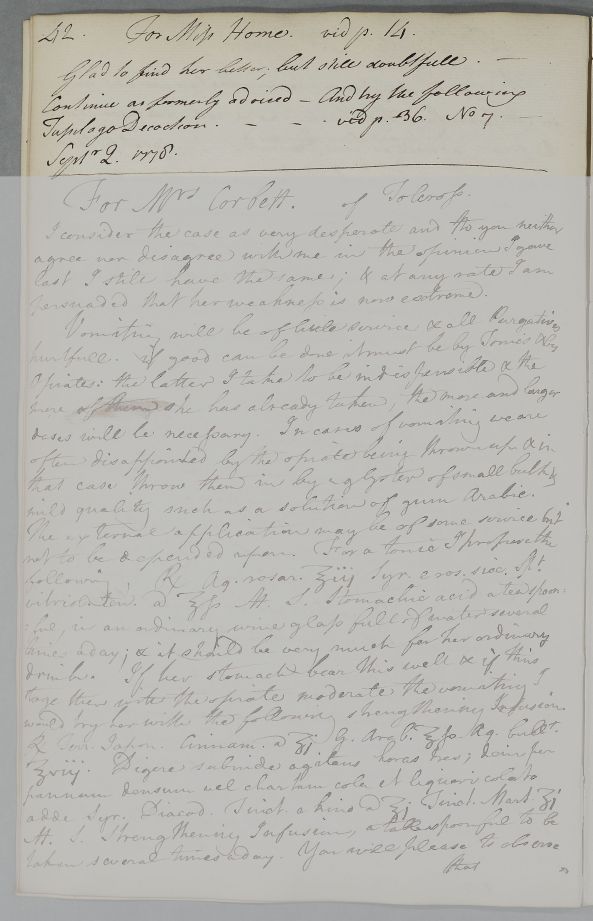 42. For Miss Home. vid p. 14.
Glad to find her better; but still doubtfull.
Continue as formerly advised – And try the following
Tussilago Decoction. – – . vid p. 36. No 7.
Septr 2. 1778.
For Mrs Corbett. of Tolcross.
I consider the case as very desperate and tho you neither
agree nor disagree with me in the opinion I gave
last I still have the same; & at any rate I am
persuaded that her weakness is now extreme.
Vomiting will be of little service & all Purgatives
hurtfull. If good can be done it must be by Tonics & by
Opiates: the latter I take to be indispensible & the
more she has already taken, the more and larger
doses will be necessary. In cases of vomiting we are
often disappointed by the opiate being thrown up & in
that case throw them in by a glyster of small bulk &
mild quality such as a solution of gum Arabic.
The external application may be of some service but
not to be depended upon. For a tonic I propose the
following; ℞ Aq. rosar. ℥iij Syr. e ros. sicc. Spt.
vitriol. ten. a ℥ſs M. S. Stomachic acid a teaspoon:
:ful, in an ordinary wine glass full of water several
times a day; & it should be very much for her ordinary
drink. If her stomach bear this well & if this
together with the opiate moderate the vomiting I
would try her with the following strengthening Infusion
℞ Terr. Japon. Cinnam. a ʒj. G. Arab. ℥ſs Aq. bullt.
℥viij. Digere subinde agitans horas tres; dein per
pannum densum vel chartam cola et liquori colato
adde Syr. Diacod. Tinct. a kino a ℥j Tinct. Mart. ʒj
M. S. Strengthening Infusion, a tablespoonful to be
taken several times a day. You will please to observe
that